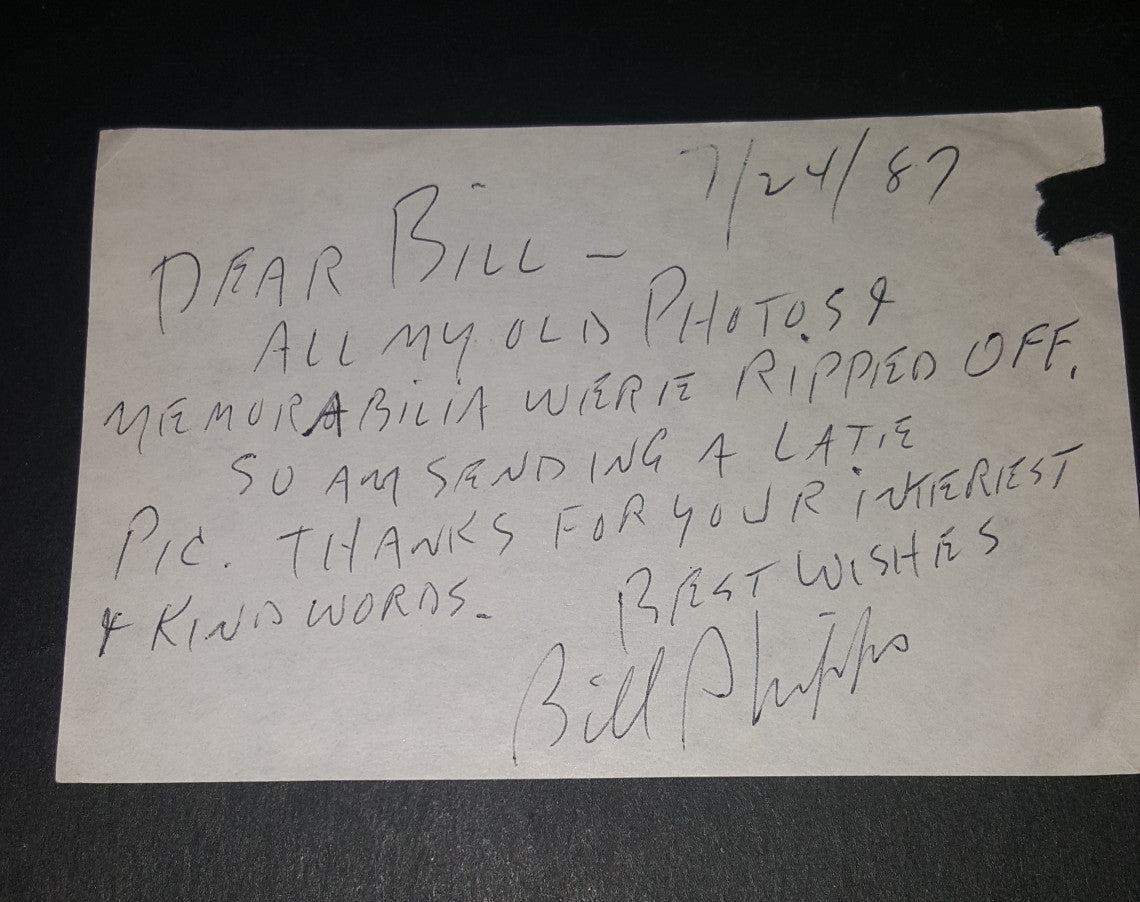 7/24/87
DEAR BILL –
ALL MY OLD PHOTOS &
MEMORABILIA WERE RIPPED OFF.
SO AM SENDING A LATE
PIC. THANKS FOR YOUR INTEREST
& KIND WORDS.
BEST WISHES
Bill Phipps